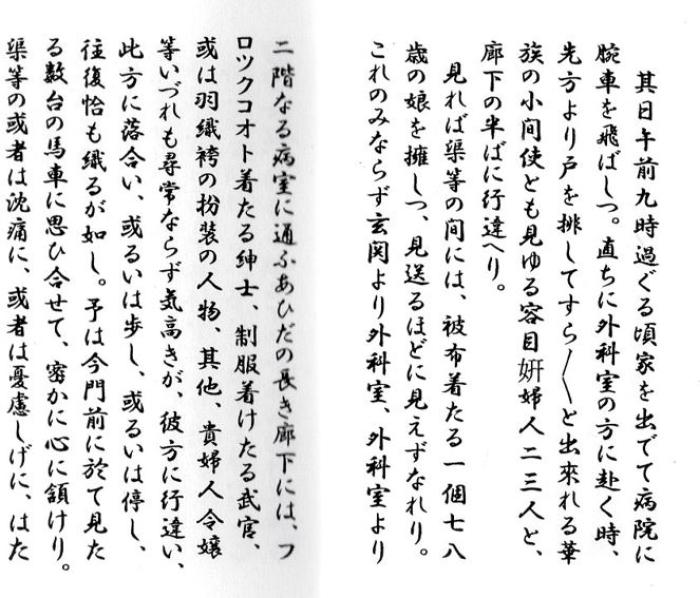 其日午前九時過ぐる頃家を出でて病院に
腕車を飛ばしつ。直ちに外科室の方に赴く時、
先方より戸を排してすら〳〵と出来れる華
族の小間使とも見ゆる容目妍婦人二三人と、
廊下の半ばに行違へり。
見れば渠等の間には、被布着たる一個七八
歳の娘を擁しつ、見送るほどに見えずなれり。
これのみならず玄関より外科室、外科室より
二階なる病室に通ふあひだの長き廊下には、フ
ロツクコオト着たる紳士、制服着けたる武官、
或は羽織袴の扮装の人物、其他、貴婦人令嬢
等いづれも尋常ならず気高きが、彼方に行違い、
此方に落合い、或るいは歩し、或るいは停し、
往復恰も織るが如し。予は今門前に於て見た
る数台の馬車に思ひ合せて、密かに心に頷けり。
渠等の或者は沈痛に、或者は憂慮しげに、はた